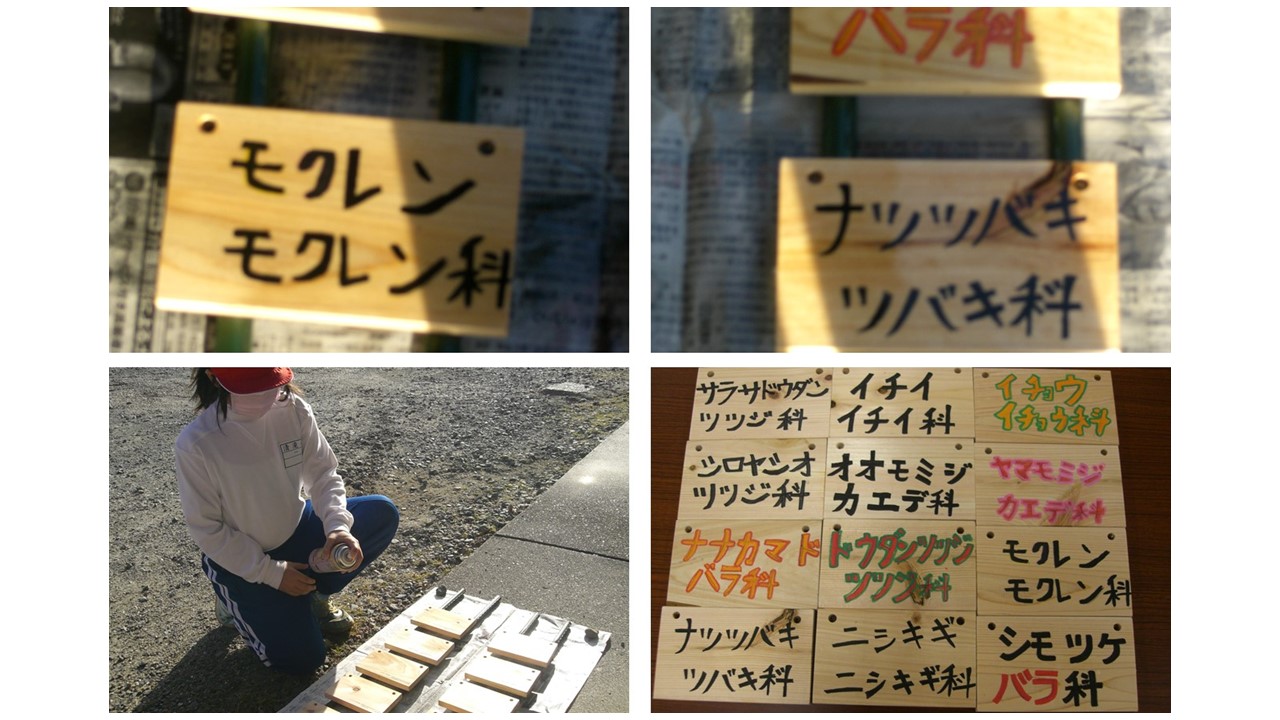 モクレン
モクレン科
バラ科
ナツツバキ
ツバキ科
サラサドウダン
ツツジ科
イチイ
イチイ科
イチョウ
イチョウ科
シロヤシオ
ツツジ科
オオモミジ
カエデ科
ヤマモミジ
カエデ科
ナナカマド
バラ科
ドウダンツツジ
ツツジ科
モクレン
モクレン科
ナツツバキ
ツバキ科
ニシキギ
ニシキギ科
シモツケ
バラ科